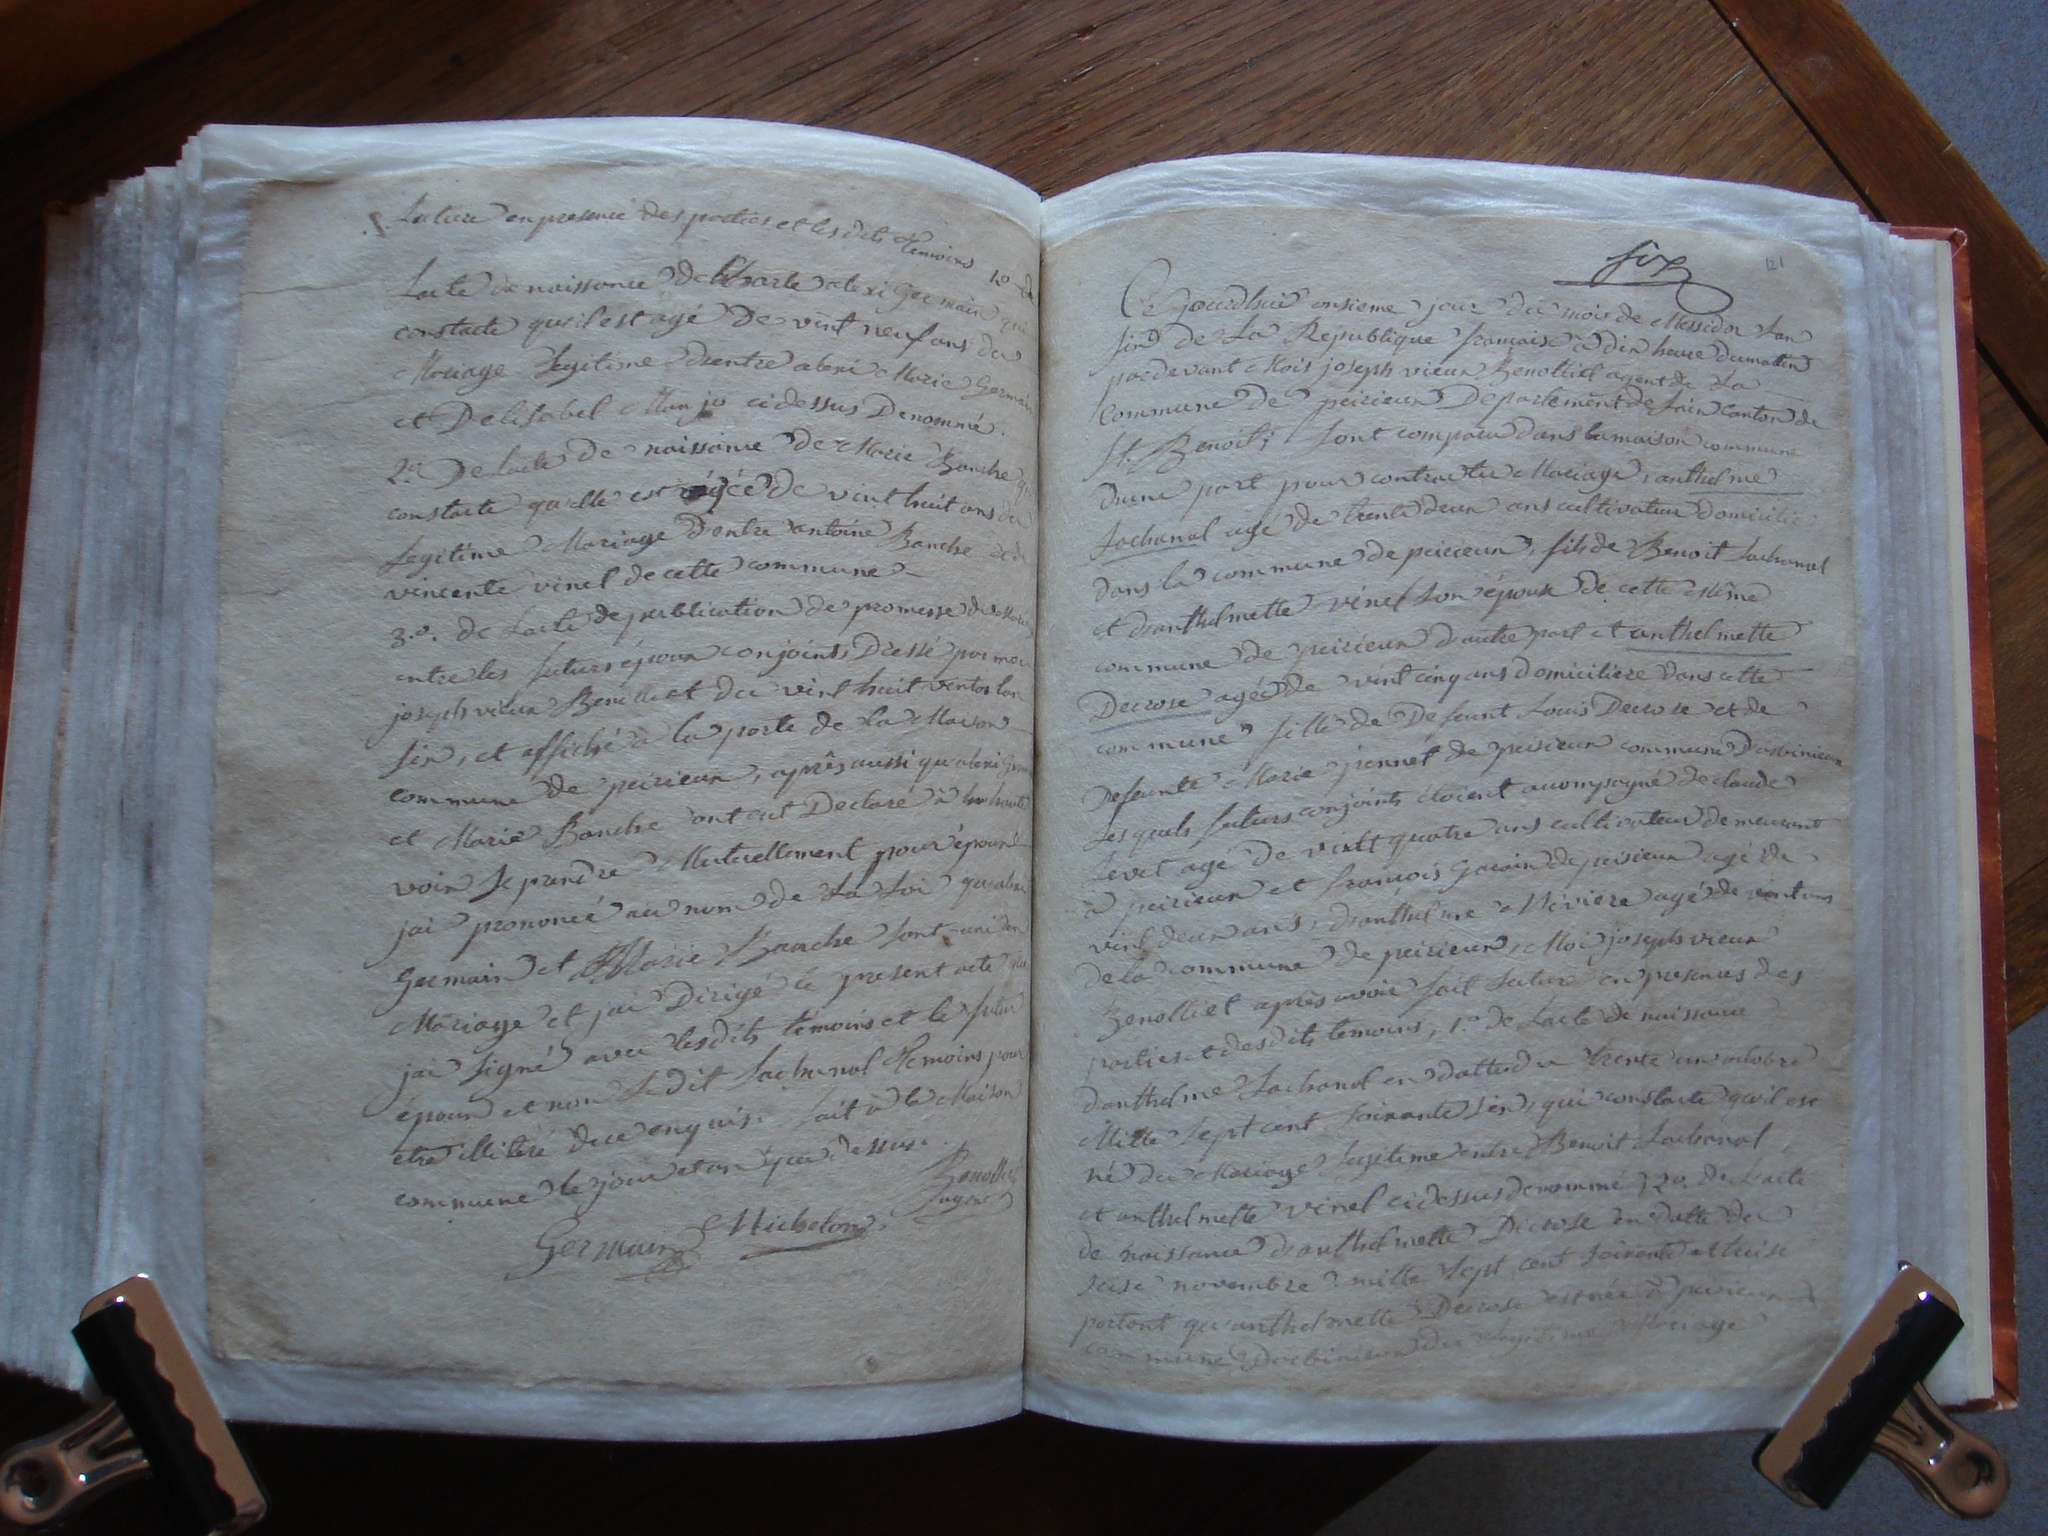 Lature en presence des parties et lesdits temoins 1º de
Lacte de naissance de alexi Germain qui
constacte qu'il est agé de vint neuf ans du
Mariage Legitime d'entre alexi Marie Germain
et Delisabel cidessus Denommé.
2º De lacte de naissance de Marie Banche q
constacte quelle est agée de vint huit ans du
Legitime Mariage d'entre antoine Banche et de
vincente vinel de cette commune
3º. de Lacte de publication de promesse de Mariage
entre les futurs époux conjoints Dressé par moi
joseph vieux Benolliet du vint huit ventos lan
six, et affiché à la porte de la Maison
commune de peirieux, après aussi qu'alexi Germain
et Marie Banche ont eut Declaré à haute
voix se prendre Mutuellement pour époux
jai prononcé au nom de La Loi qu'alexi
Germain et Marie Banche sont uni en
Mariage et jai Dirigé le present acte que
jai signé avec lesdits témoins et le futur
époux et non Ledit Lachanal temoins pour
etre illiteré de ce enquis. fait à la Maison
commune le jour et an que dessus.
Benolliet
agent
Germain Michelon
six
121
Ce jourdhui onsieme jour du mois de Messidor Lan
six de La Republique francaise à dix heure dumatin
pardevant Mois joseph vieux Benolliet agent de La
Commune de peirieux Departement de Lain Canton de
St. Benoit; sont comparu dans lamaison commune
dune part pour contracter Mariage, anthelme
Lachanal agé de trente deux ans cultivateur Domicilié
dans la commune de peirieux, fils de Benoit Lachanal
et danthelmette vinel son épouse de cette même
commune de peirieux dautre part et anthelmette
Decrose agée de vint cinq ans domiciliere dans cette
commune fille de Defunt Louis Decrose et de
Defunte Marie pennet de peisieux commune Darbinieux
Lesquels futurs conjoints étoient acompagné de claude
Levet agé de vint quatre ans cultivateur demeurant
à peirieux et francois Gavain de peisieux agé de
vint deux ans, danthelme Riviere agé de vint ans
de la commune de peirieux, Moi joseph vieux
Benolliet après avoir fait Lature en presences des
parties et desdits temoins, 1º de Lacte de naissance
danthelme Lachanal en datte du trente un octobre
Mille Sept cent Soixante six, qui constacte quil est
né du Mariage Legitime entre Benoit Lachanal
et anthelmette vinel cidessus denommé, 2º. de Lacte
de naissance danthelmette Decrose en datte du
seise novembre mille Sept cent soixente et treise
portant qu'anthelmette Decrose est née à peisieux
commune Darbinieux du Legitime Mariage